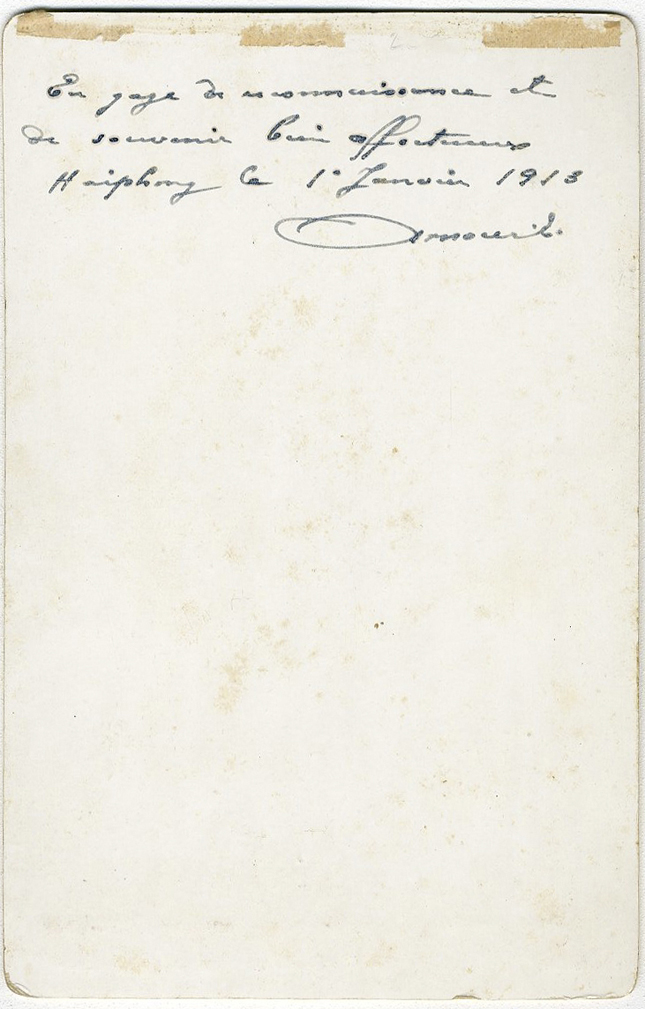 En gage de reconnaissance et
de souvenir bien affectueux
Haiphong le 1° Janvier 1913